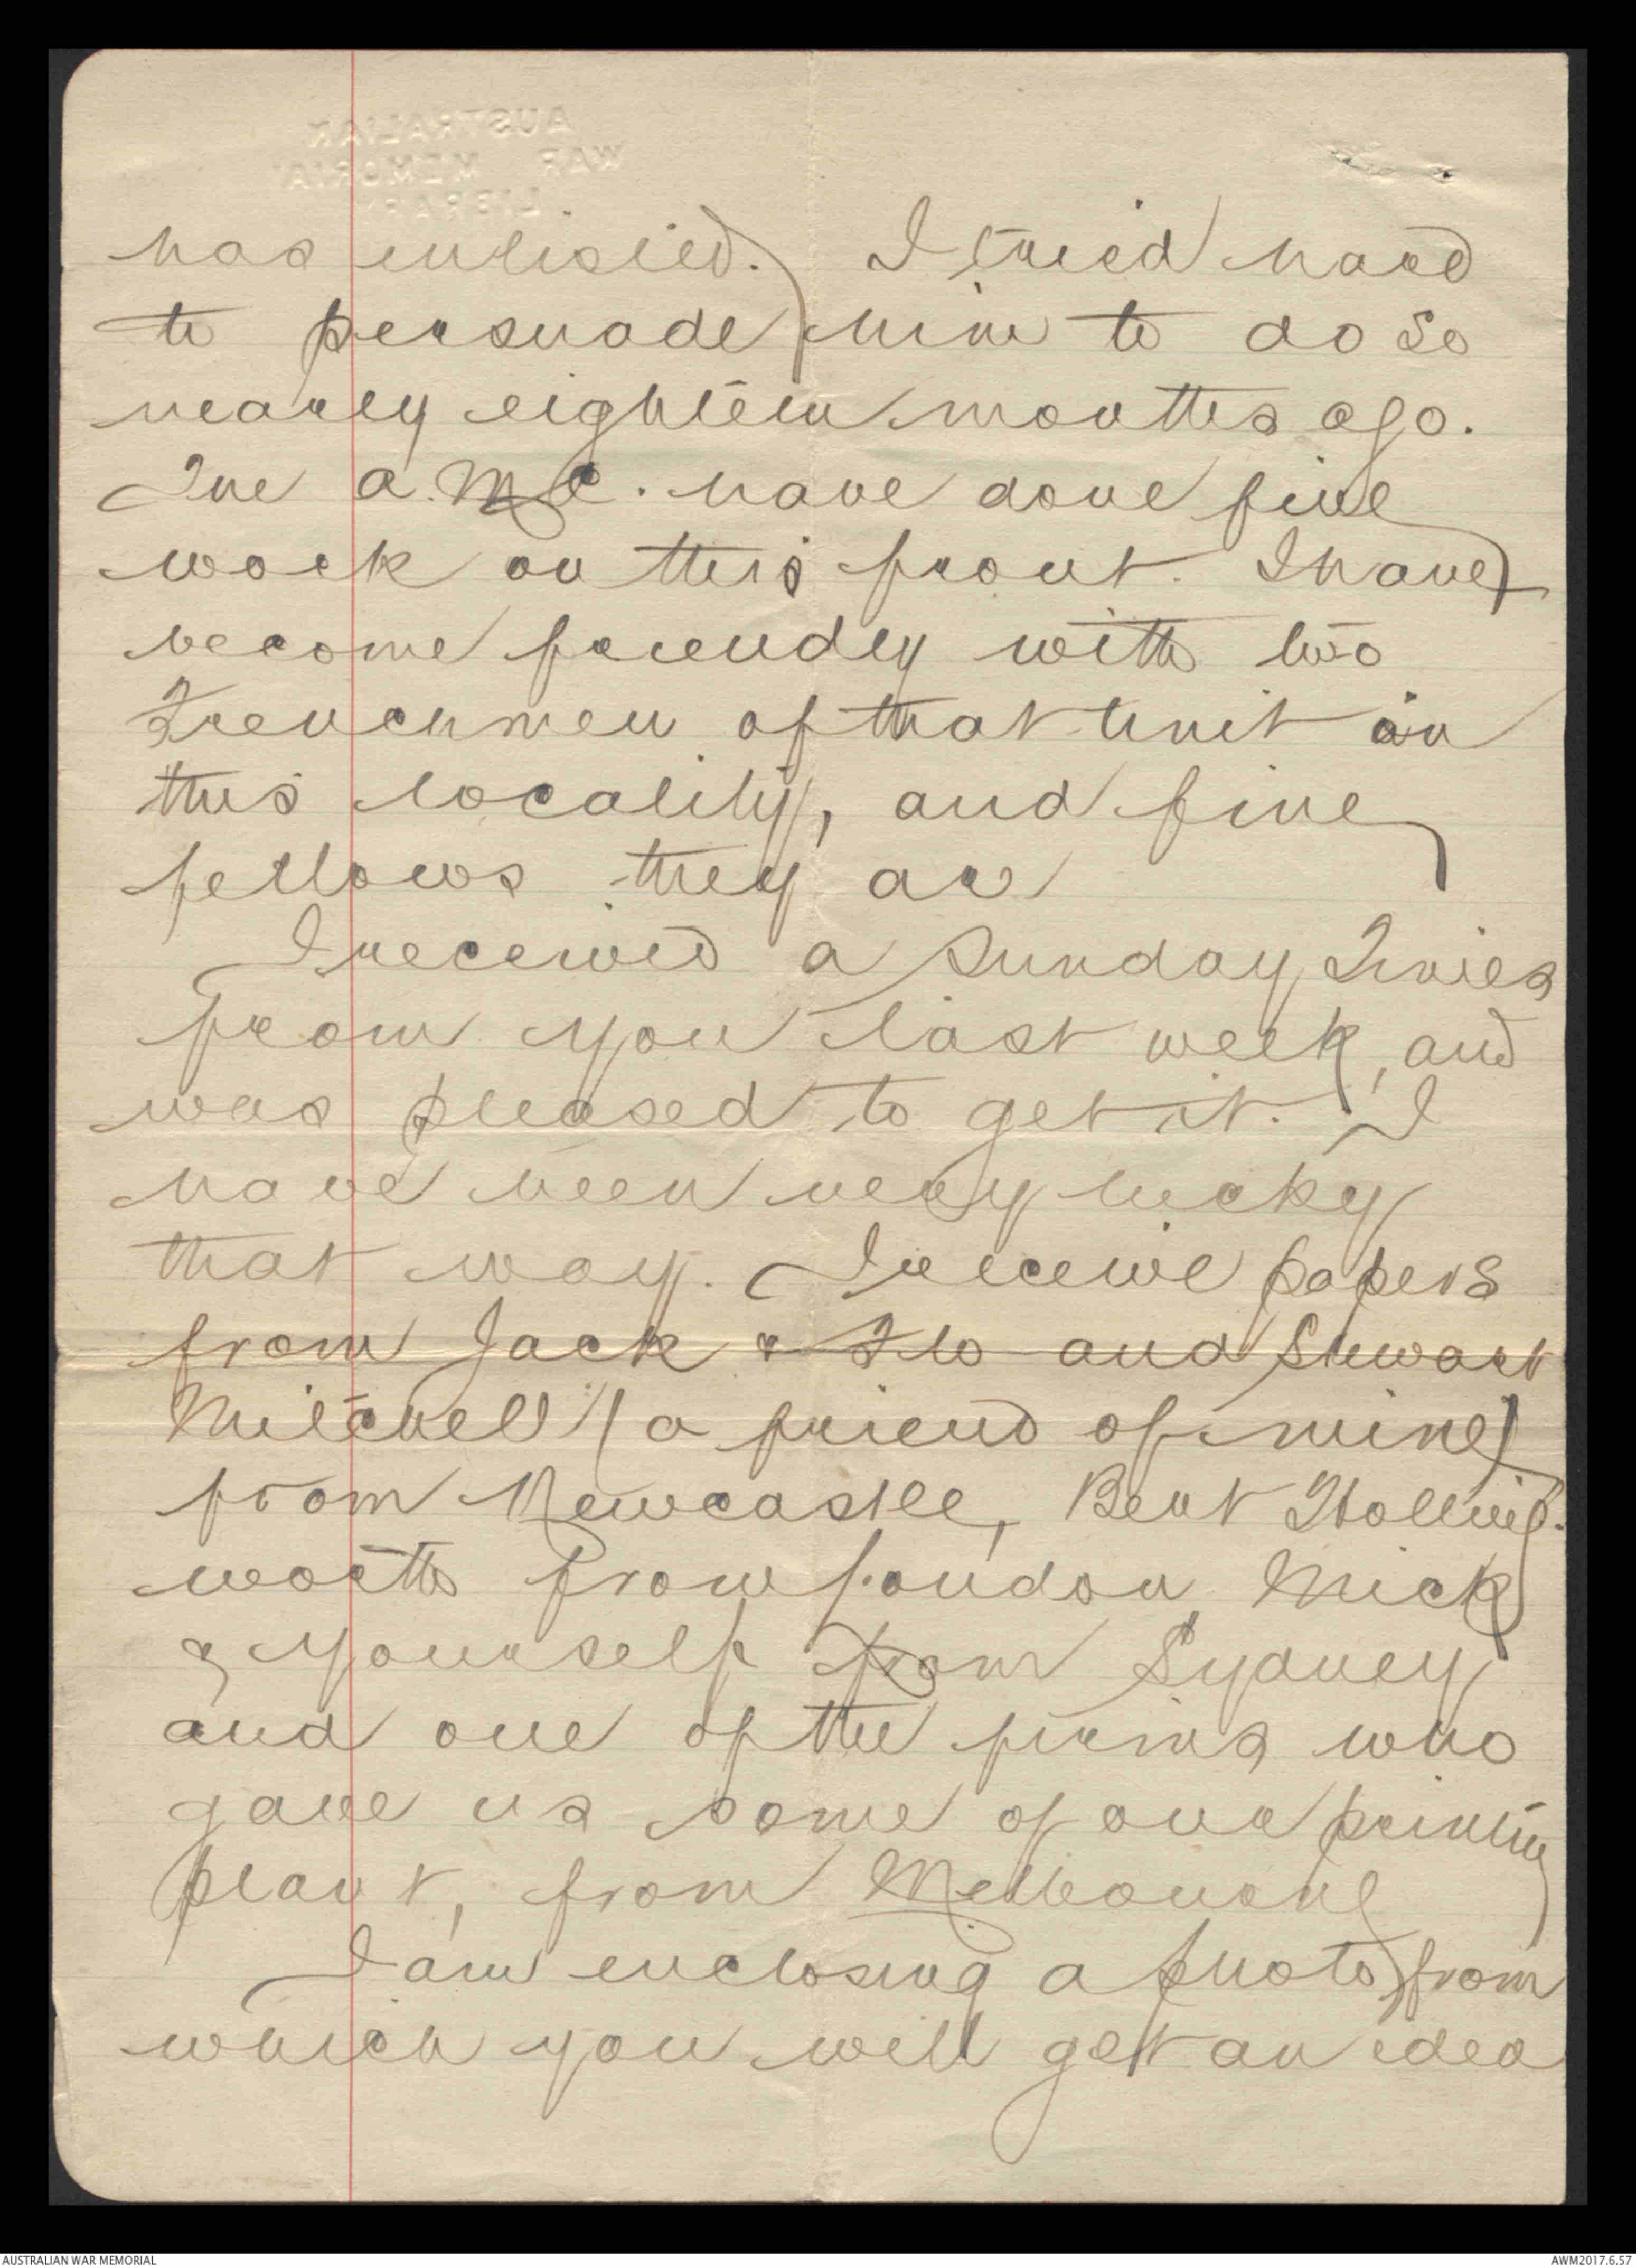 AUSTRALIAN
WAR MEMORIAL
LIBRARY
has enlisted. I tried hard
to persuade him to do so
nearly eighteen months ago.
The A.M.C. have done fine
work on this front. I have
become friendly with two
Frenchmen of that unit in
this locality, and fine
fellows they are
I received a Sunday Times
from you last week, and
was pleased to get it. I
have been very lucky
that way. I receive papers
from Jack & Flo and Stewart
Mitchell (a friend of mine)
from Newcastle, Bert Holling-
worth from London Mick
& yourself from Sydney
and one of the firms who
gave us some of our printing
plant, from Melbourne
I am enclosing a photo from
which you will get an idea
AUSTRALIAN WAR MEMORIAL
AWM2017.6.57